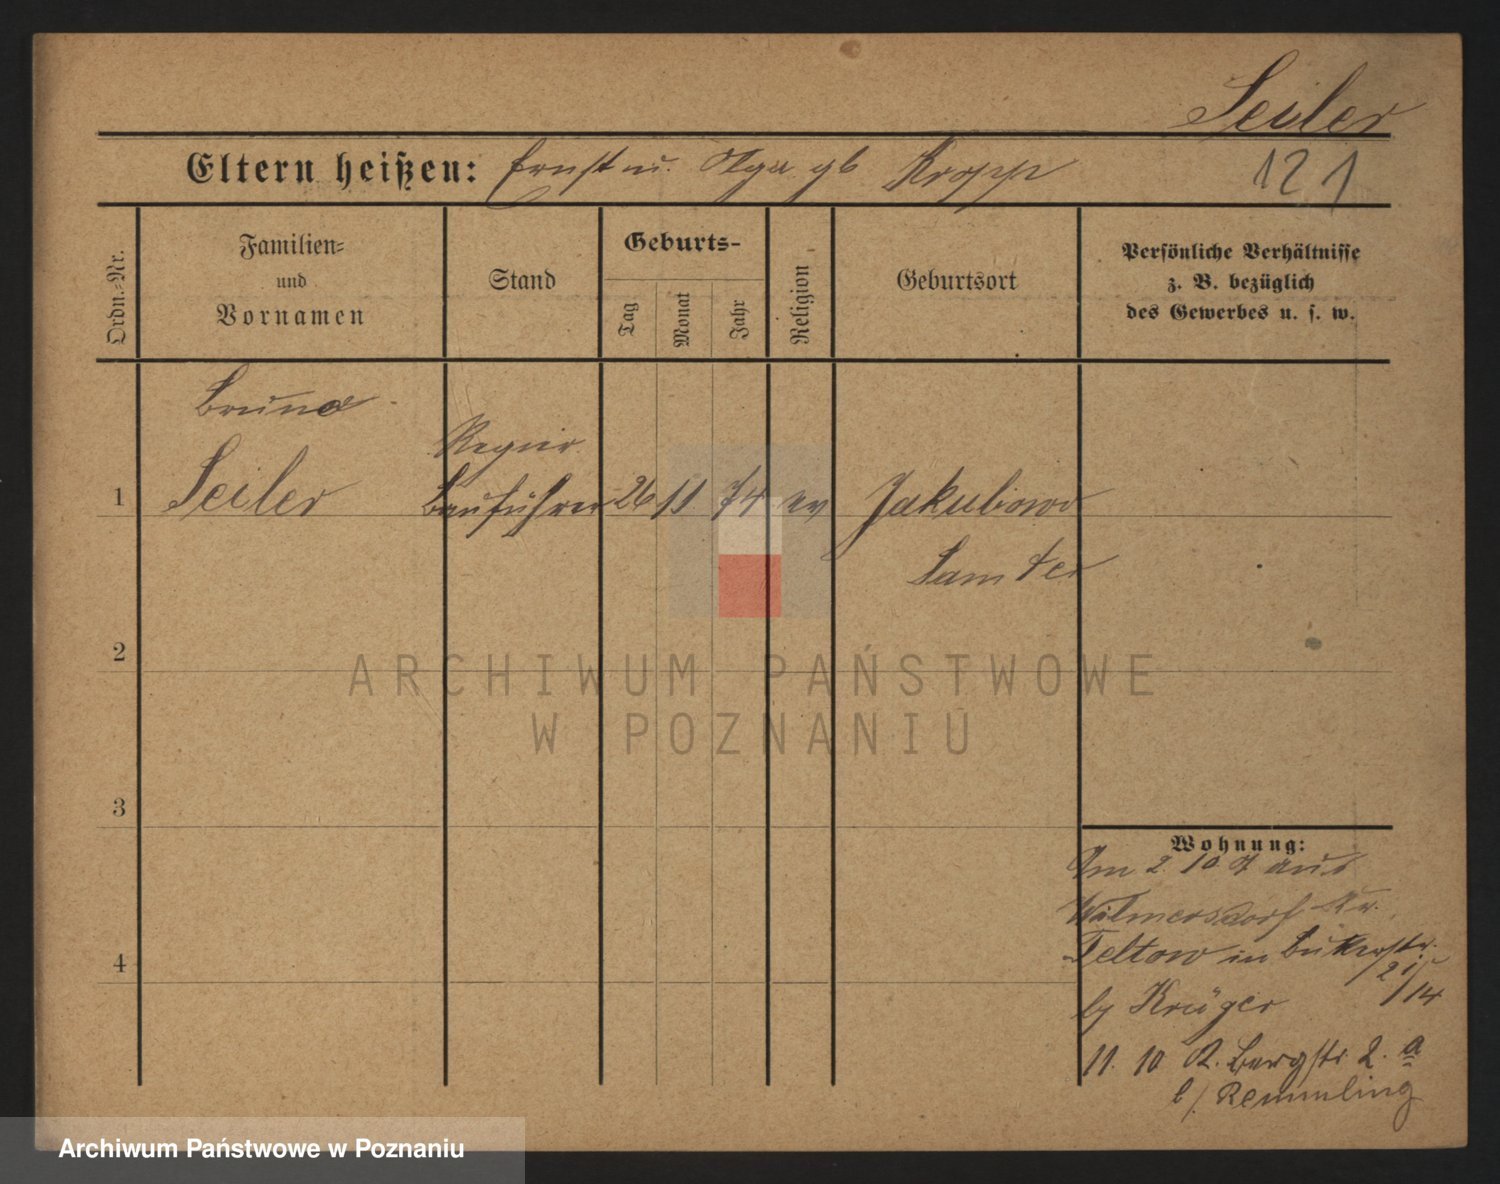 Seiler
Eltern heißen: Ernst u. Olga gb Kropp
121
Ordn.-Nr.
Familien-
und
Vornamen
Stand
Geburts-
Tag
Monat
Jahr
Religion
Geburtsort
Persönliche Verhältnisse
z. B. bezüglich
des Gewerbes u. s. w.
Bruno
Regier
1 Seiler Bauführer 26 11 74 ev Jakubowo
Samter
2
3
4
Wohnung:
Am 2. 10. aus
Wilmersdorf Kr.
Teltow in Bukerstr.
21/14
by Krüger
11. 10 Bergstr. 2. a
b/ Remmling
ARCHIWUM PAŃSTWOWE
W POZNANIU
Archiwum Państwowe w Poznaniu